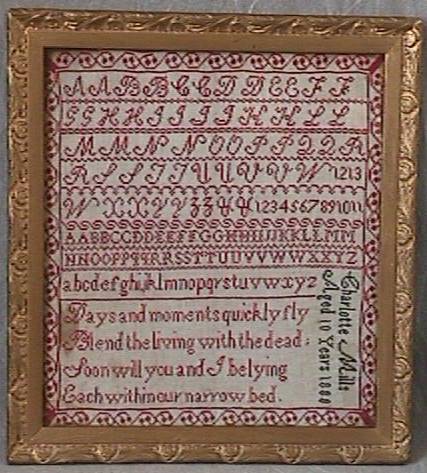 A A B B C C D D E E F F
G G H H I I J J K K L L
M M N N O O P P Q Q R
R S S T T U U V V W 12 13
W X X Y Y Z Z & & 1 2 3 4 5 6 7 8 9 10 11
AABBCCDDEEFFGGHHIIJKKLLMM
NNOOPPQQRRSSTTUUVVWWXYZ
abcdefghijklmnopqrstuvwxyz
Days and moments quickly fly
Blend the living with the dead;
Soon will you and I be lying
Each within our narrow bed.
Charlotte Mills
Aged 10 Years 1880